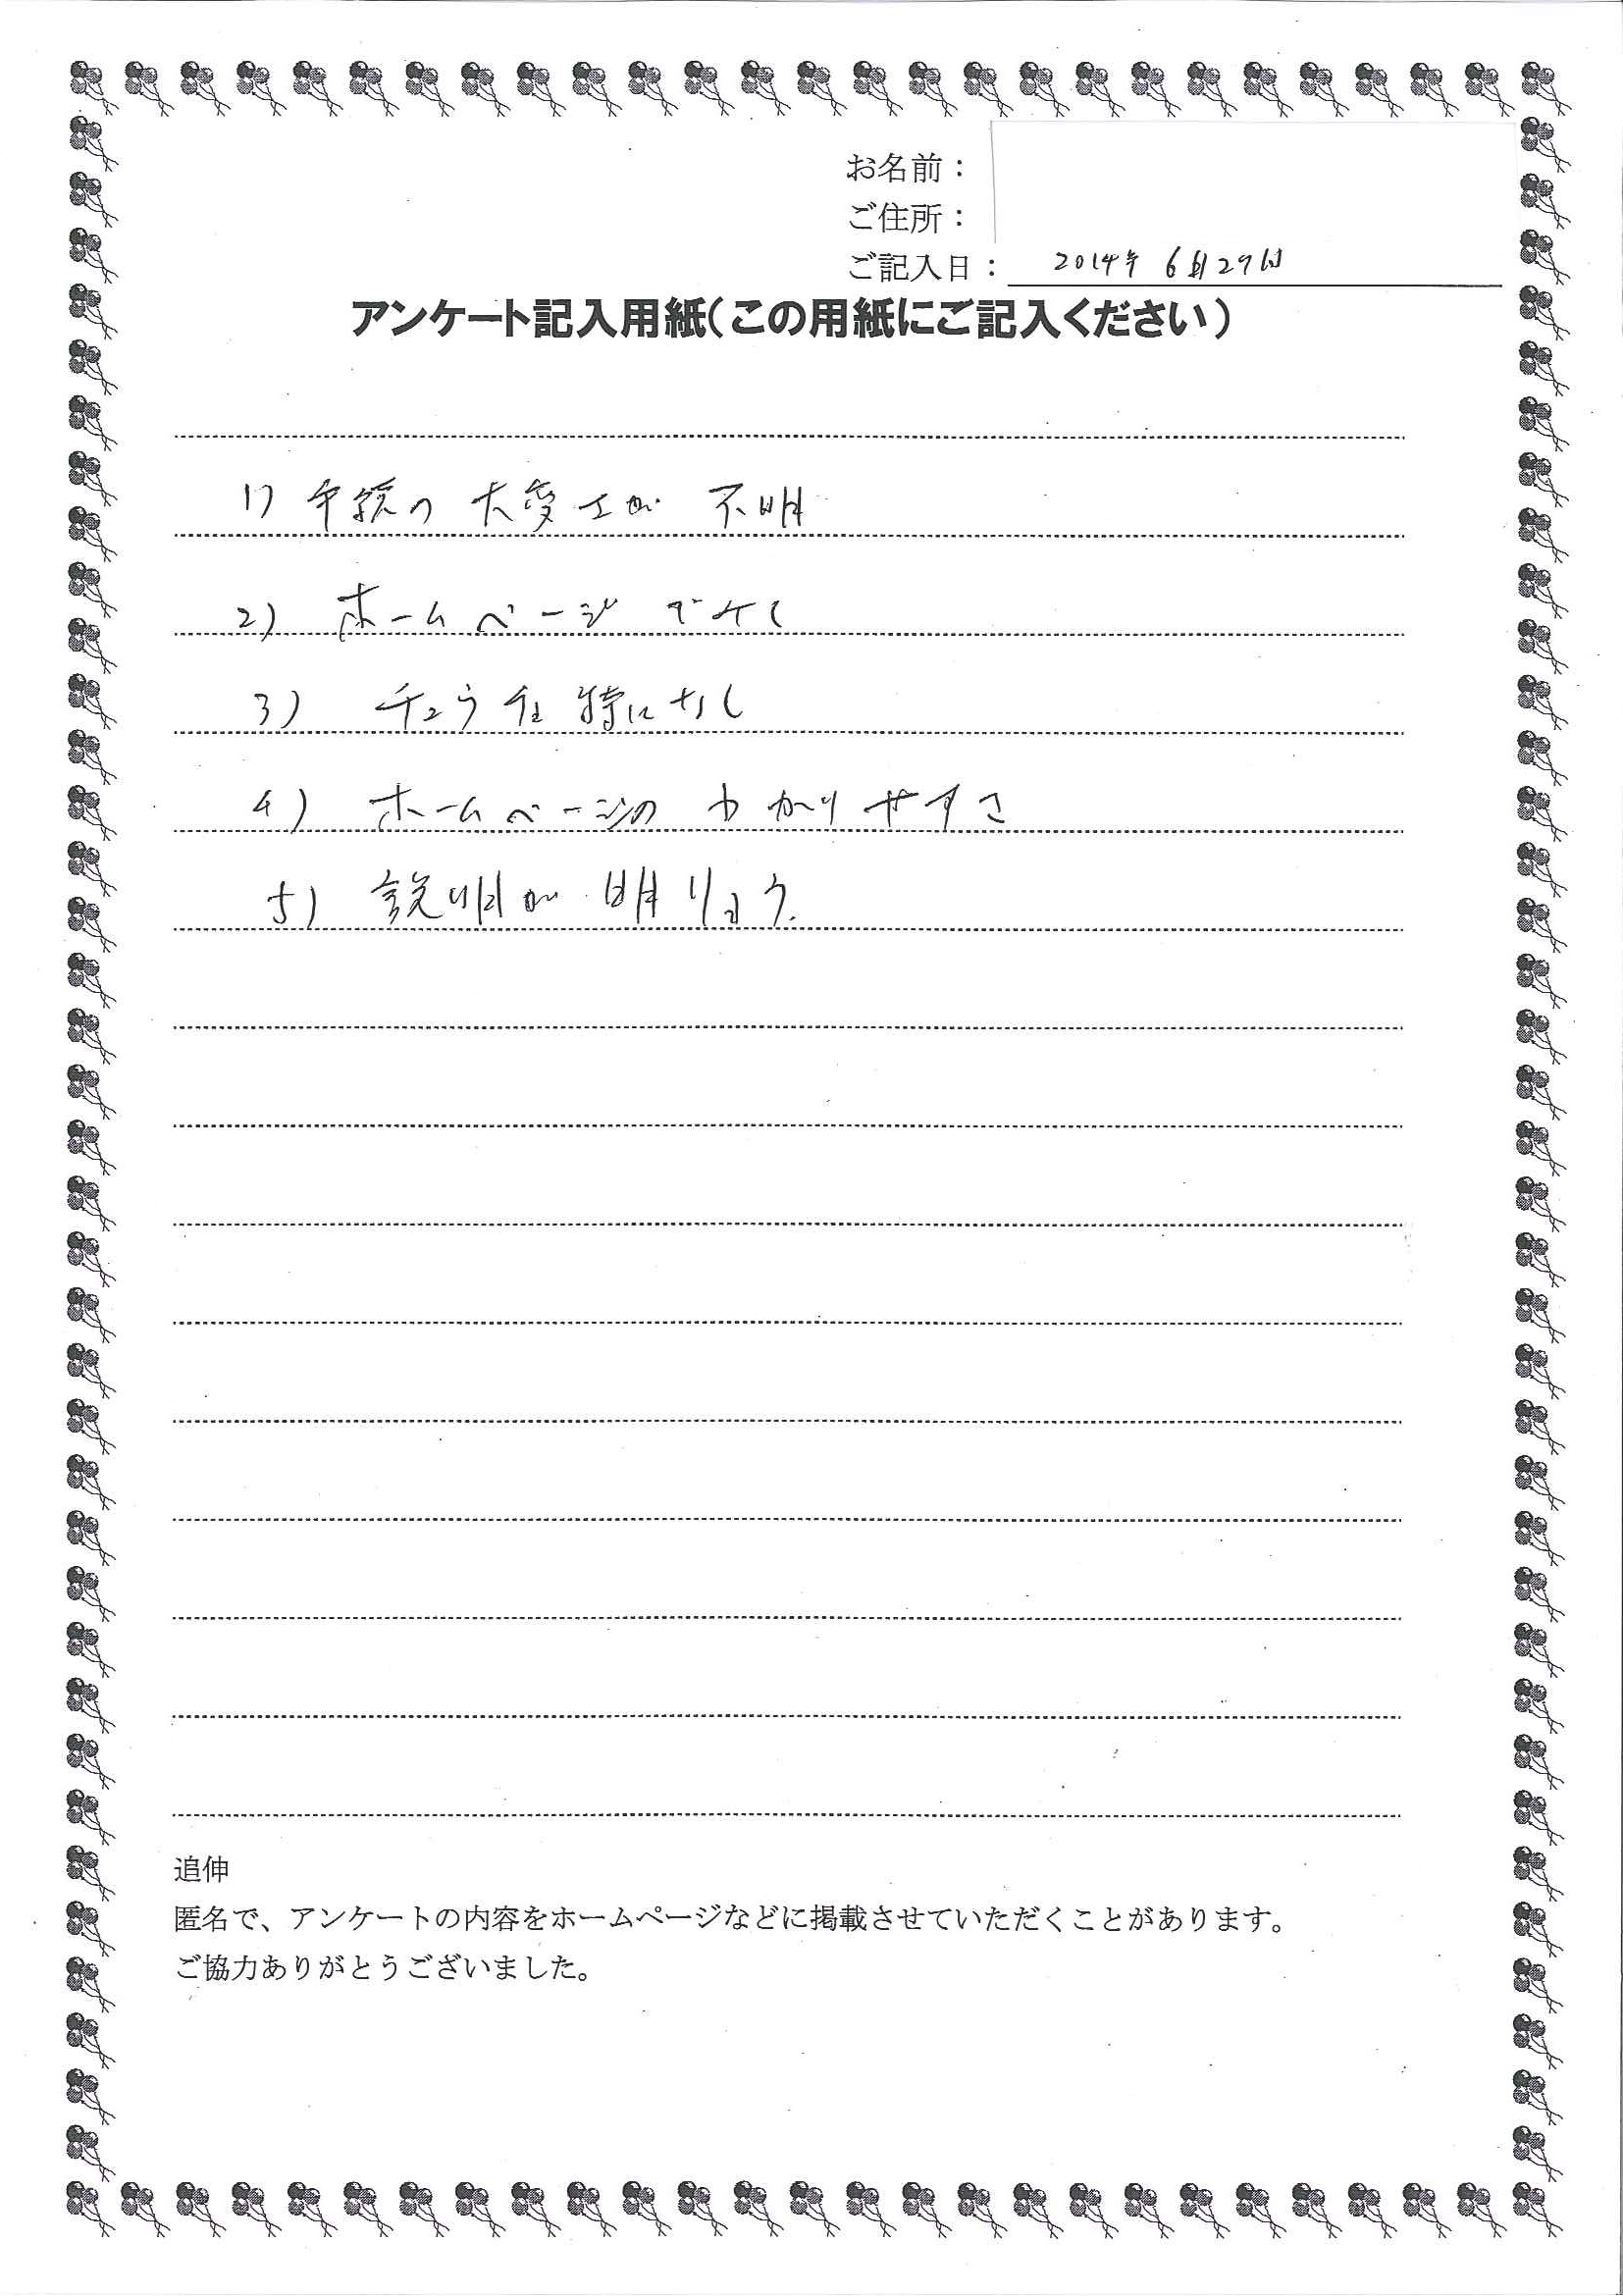 お名前：
ご住所：
ご記入日： 2014年 6月29日
アンケート記入用紙（この用紙にご記入ください）
1) 手続の 大変さが 不明
2) ホームページ
3) 特になし
4) ホームページの わかりやすさ
5) 説明が 明りょう.
追伸
匿名で、アンケートの内容をホームページなどに掲載させていただくことがあります。
ご協力ありがとうございました。